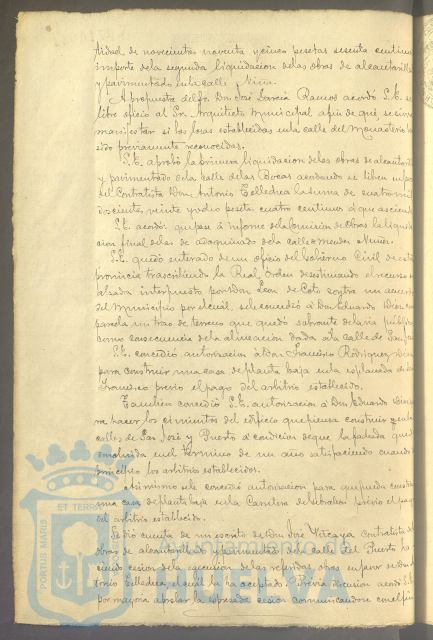 tidad de novecientas noventa y cinco pesetas sesenta centimos
importe de la segunda liquidacion de las obras de alcantarillado
y pavimentado en la calle Niña.
A propuesta del Sr. Don José García Ramos acordó S.E. se
libre oficio al Sr. Arquitecto Municipal a fin de que se sirva
manifestar si las losas establecidas en la calle del Monasterio ha
sido previamente reconocidas.
S.E. aprobó la primera liquidacion de las obras de alcantarillado
y pavimentado de la calle de las Bocas acordando se libren
del Contratista Don Antonio Telledrea la suma de cuatro mil
veinte y pesetas cuatro centimos a que asciende
S.E. acordó que pase a informe de la Comision de Obras la liquida
cion final de las de adoquinado de la calle Mendez Nuñez.
S.E. quedó enterado de un oficio del Gobierno Civil de esta
provincia trascribiendo la Real Orden desestimando el recurso de
alzada interpuesto por Don Leon de Coto contra un acuerdo
del Municipio por el cual se le concedió a Don Eduardo Diaz
parcela un trozo de terreno que quedó sobrante de la via publica
como consecuencia de la alineacion dada a la calle de San José
S.E. concedió autorizacion a Don Francisco Rodriguez
para construir una casa de planta baja en la esplanada de San
Francisco previo el pago del arbitrio establecido.
Tambien concedió S.E. autorizacion a Don Eduardo Diaz
ra hacer los cimientos del edificio que piensa construir en la
calle de San José y Puerto a condicion de que la fachada quede
concluida en el término de un año satisfaciendo cuando
principio los arbitrios establecidos.
Asimismo se concedió autorizacion para que pueda construir
una casa de planta baja en la Carretera de Gibraleon previo el pago
del arbitrio establecido.
Se dio cuenta de un escrito de Don José Vizcaya contratista de
obras de alcantarillado y pavimentado de la calle del Puerto ha
ciendo cesion de la ejecucion de las referidas obras en favor de Don
tonio Telledrea, el cual la ha aceptado. Previa discusion acordó S.E.
por mayoria aprobar la espresada cesion comunicandose
PORTUS MARIS
ET TERRAE
Ayuntamiento de
HUELVA